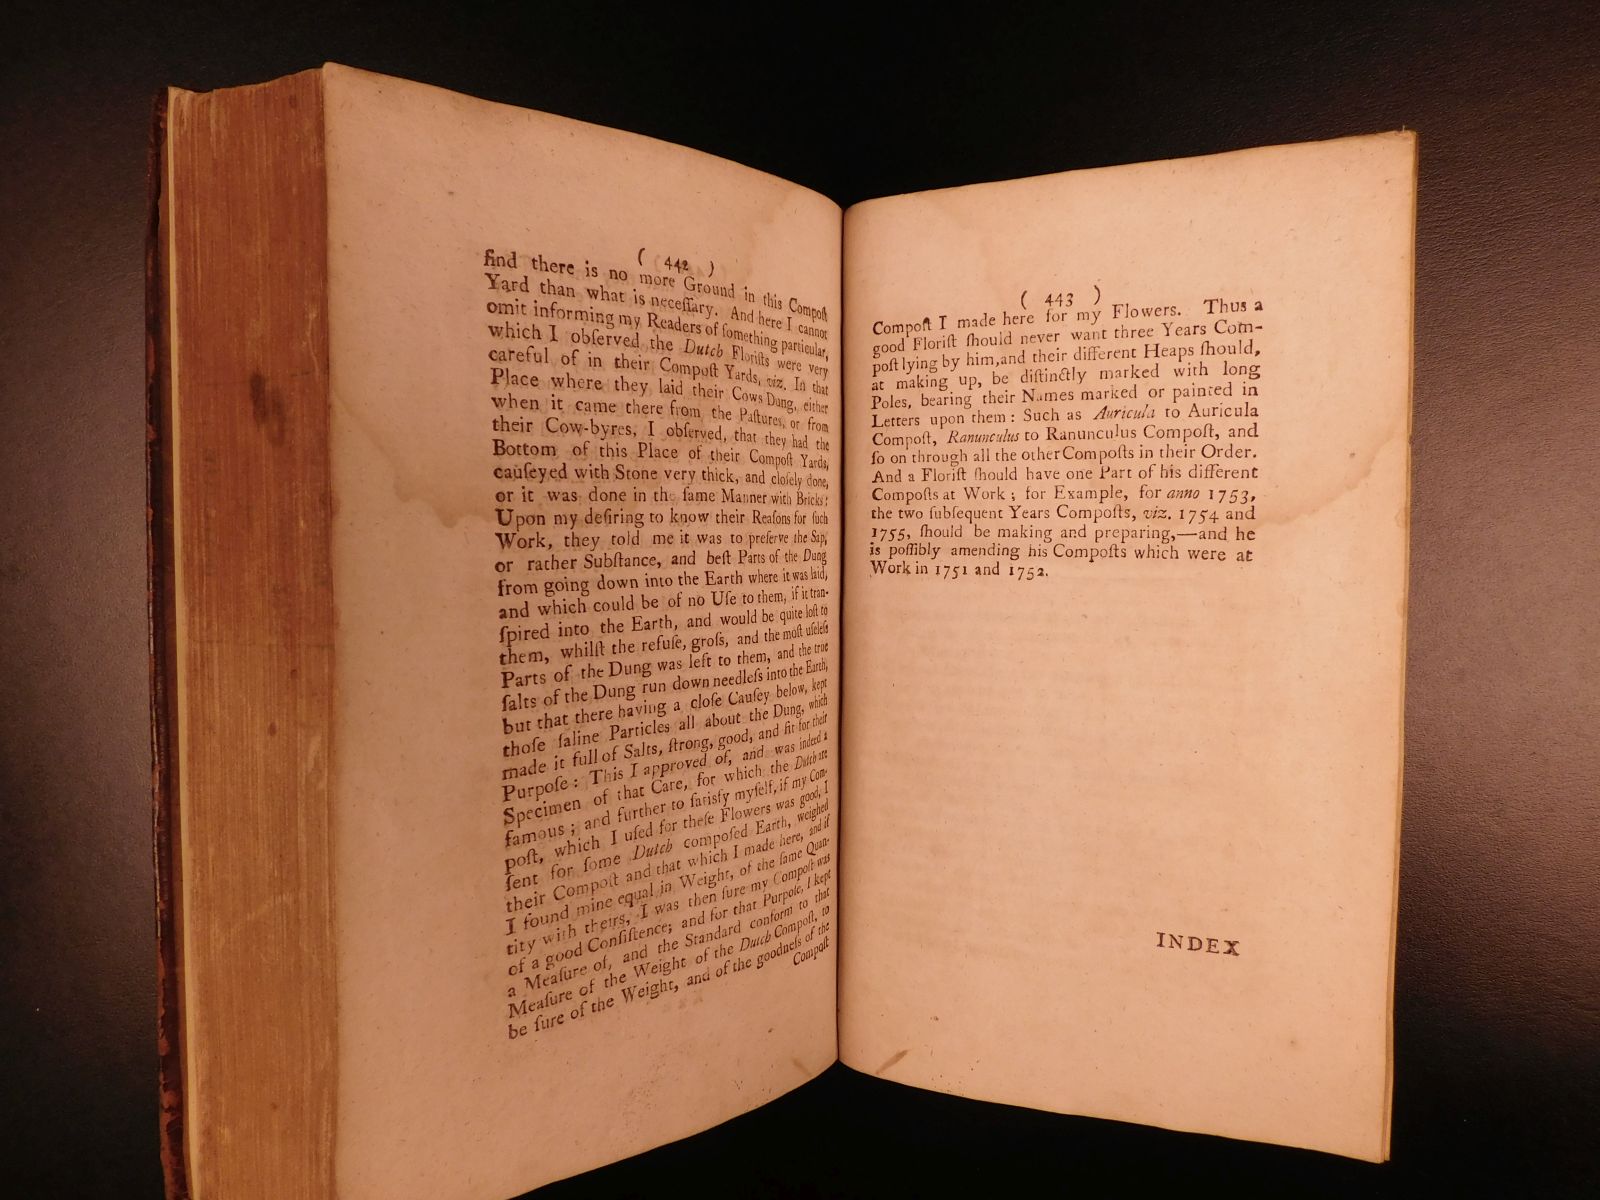 ( 442 )
find there is no more Ground in this Compoſt
Yard than what is neceſſary. And here I cannot
omit informing my Readers of ſomething particular,
which I obſerved the Dutch Floriſts were very
careful of in their Compoſt Yards, viz. In that
Place where they laid their Cows Dung, either
when it came there from the Paſtures, or from
their Cow-byres, I obſerved, that they had the
Bottom of this Place of their Compoſt Yards,
cauſeyed with Stone very thick, and cloſely done,
or it was done in the ſame Manner with Bricks:
Upon my deſiring to know their Reaſons for ſuch
Work, they told me it was to preſerve the Sap,
or rather Subſtance, and beſt Parts of the Dung
from going down into the Earth where it was laid,
and which could be of no Uſe to them, if it tran-
ſpired into the Earth, and would be quite loſt to
them, whilſt the refuſe, groſs, and the moſt uſeleſs
Parts of the Dung was left to them, and the true
ſalts of the Dung run down needleſs into the Earth,
but that there having a cloſe Cauſey below, kept
thoſe ſaline Particles all about the Dung, which
made it full of Salts, ſtrong, good, and fit for their
Purpoſe: This I approved of, and was indeed a
Specimen of that Care, for which the Dutch are
famous; and further to ſatisfy myſelf, if my Com-
poſt, which I uſed for theſe Flowers was good, I
ſent for ſome Dutch compoſed Earth, weighed
their Compoſt and that which I made here, and if
I found mine equal in Weight, of the ſame Quan-
tity with theirs, I was then ſure my Compoſt was
of a good Conſiſtence; and for that Purpoſe, I kept
a Meaſure of, and the Standard conform to that
Meaſure of the Weight of the Dutch Compoſt, to
be ſure of the Weight, and of the goodneſs of the
Compoſt
( 443 )
Compoſt I made here for my Flowers. Thus a
good Floriſt ſhould never want three Years Com-
poſt lying by him, and their different Heaps ſhould,
at making up, be diſtinctly marked with long
Poles, bearing their Names marked or painted in
Letters upon them: Such as Auricula to Auricula
Compoſt, Ranunculus to Ranunculus Compoſt, and
ſo on through all the other Compoſts in their Order.
And a Floriſt ſhould have one Part of his different
Compoſts at Work; for Example, for anno 1753,
the two ſubſequent Years Compoſts, viz. 1754 and
1755, ſhould be making and preparing,—and he
is poſſibly amending his Compoſts which were at
Work in 1751 and 1752.
INDEX